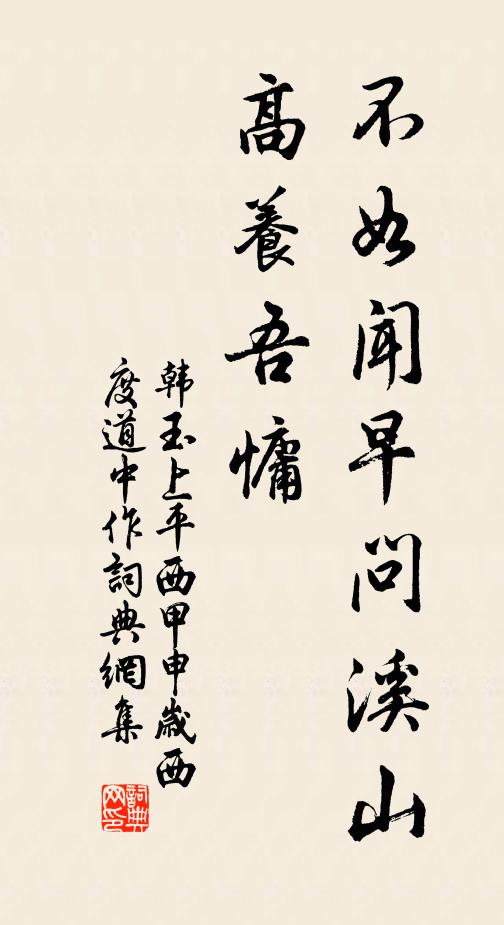 不如闻早问溪山
高養吾慵
韩玉上平西甲申歲西
度道中作詞典網集
詞典网印